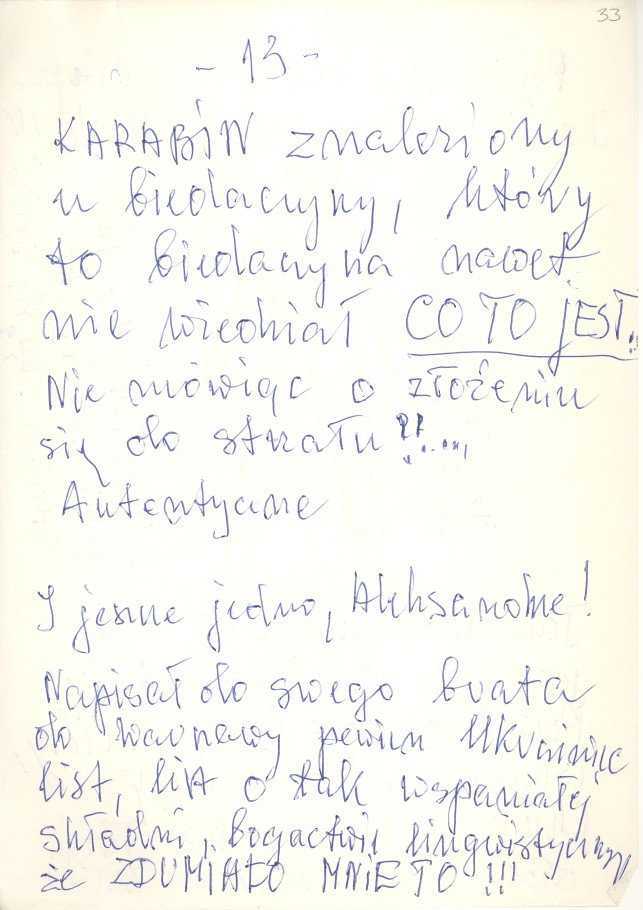 33
- 13 -
KARABIN znaleziony
u biedaczyny, który
to biedaczyna nawet
nie wiedział CO TO JEST!..
Nie mówiąc o złożeniu
się do strzału?!....,
Autentyczne
I jeszcze jedno, Aleksandrze!
Napisał do swego brata
do Warszawy pewien Ukrainiec
list, list o tak wspaniałej
składni, bogactwie lingwistycznym
że ZDUMIAŁO MNIE TO!!!